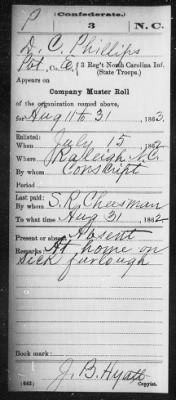 (Confederate.)
P 3 N.C.
D. C. Phillips
Pvt, Co. E, 3 Reg't North Carolina Inf.
(State Troops.)
Appears on
Company Muster Roll
of the organization named above,
for Aug 11 to 31, 1862.
Enlisted:
When July 15, 1862
Where Raleigh N.C.
By whom Conscript
Period
Last paid:
By whom S. R. Cheesman
To what time Aug 31, 1862
Present or absent Absent
Remarks: At home on
Sick furlough
Book mark:
J. B. Hyatt
(642) Copyist.